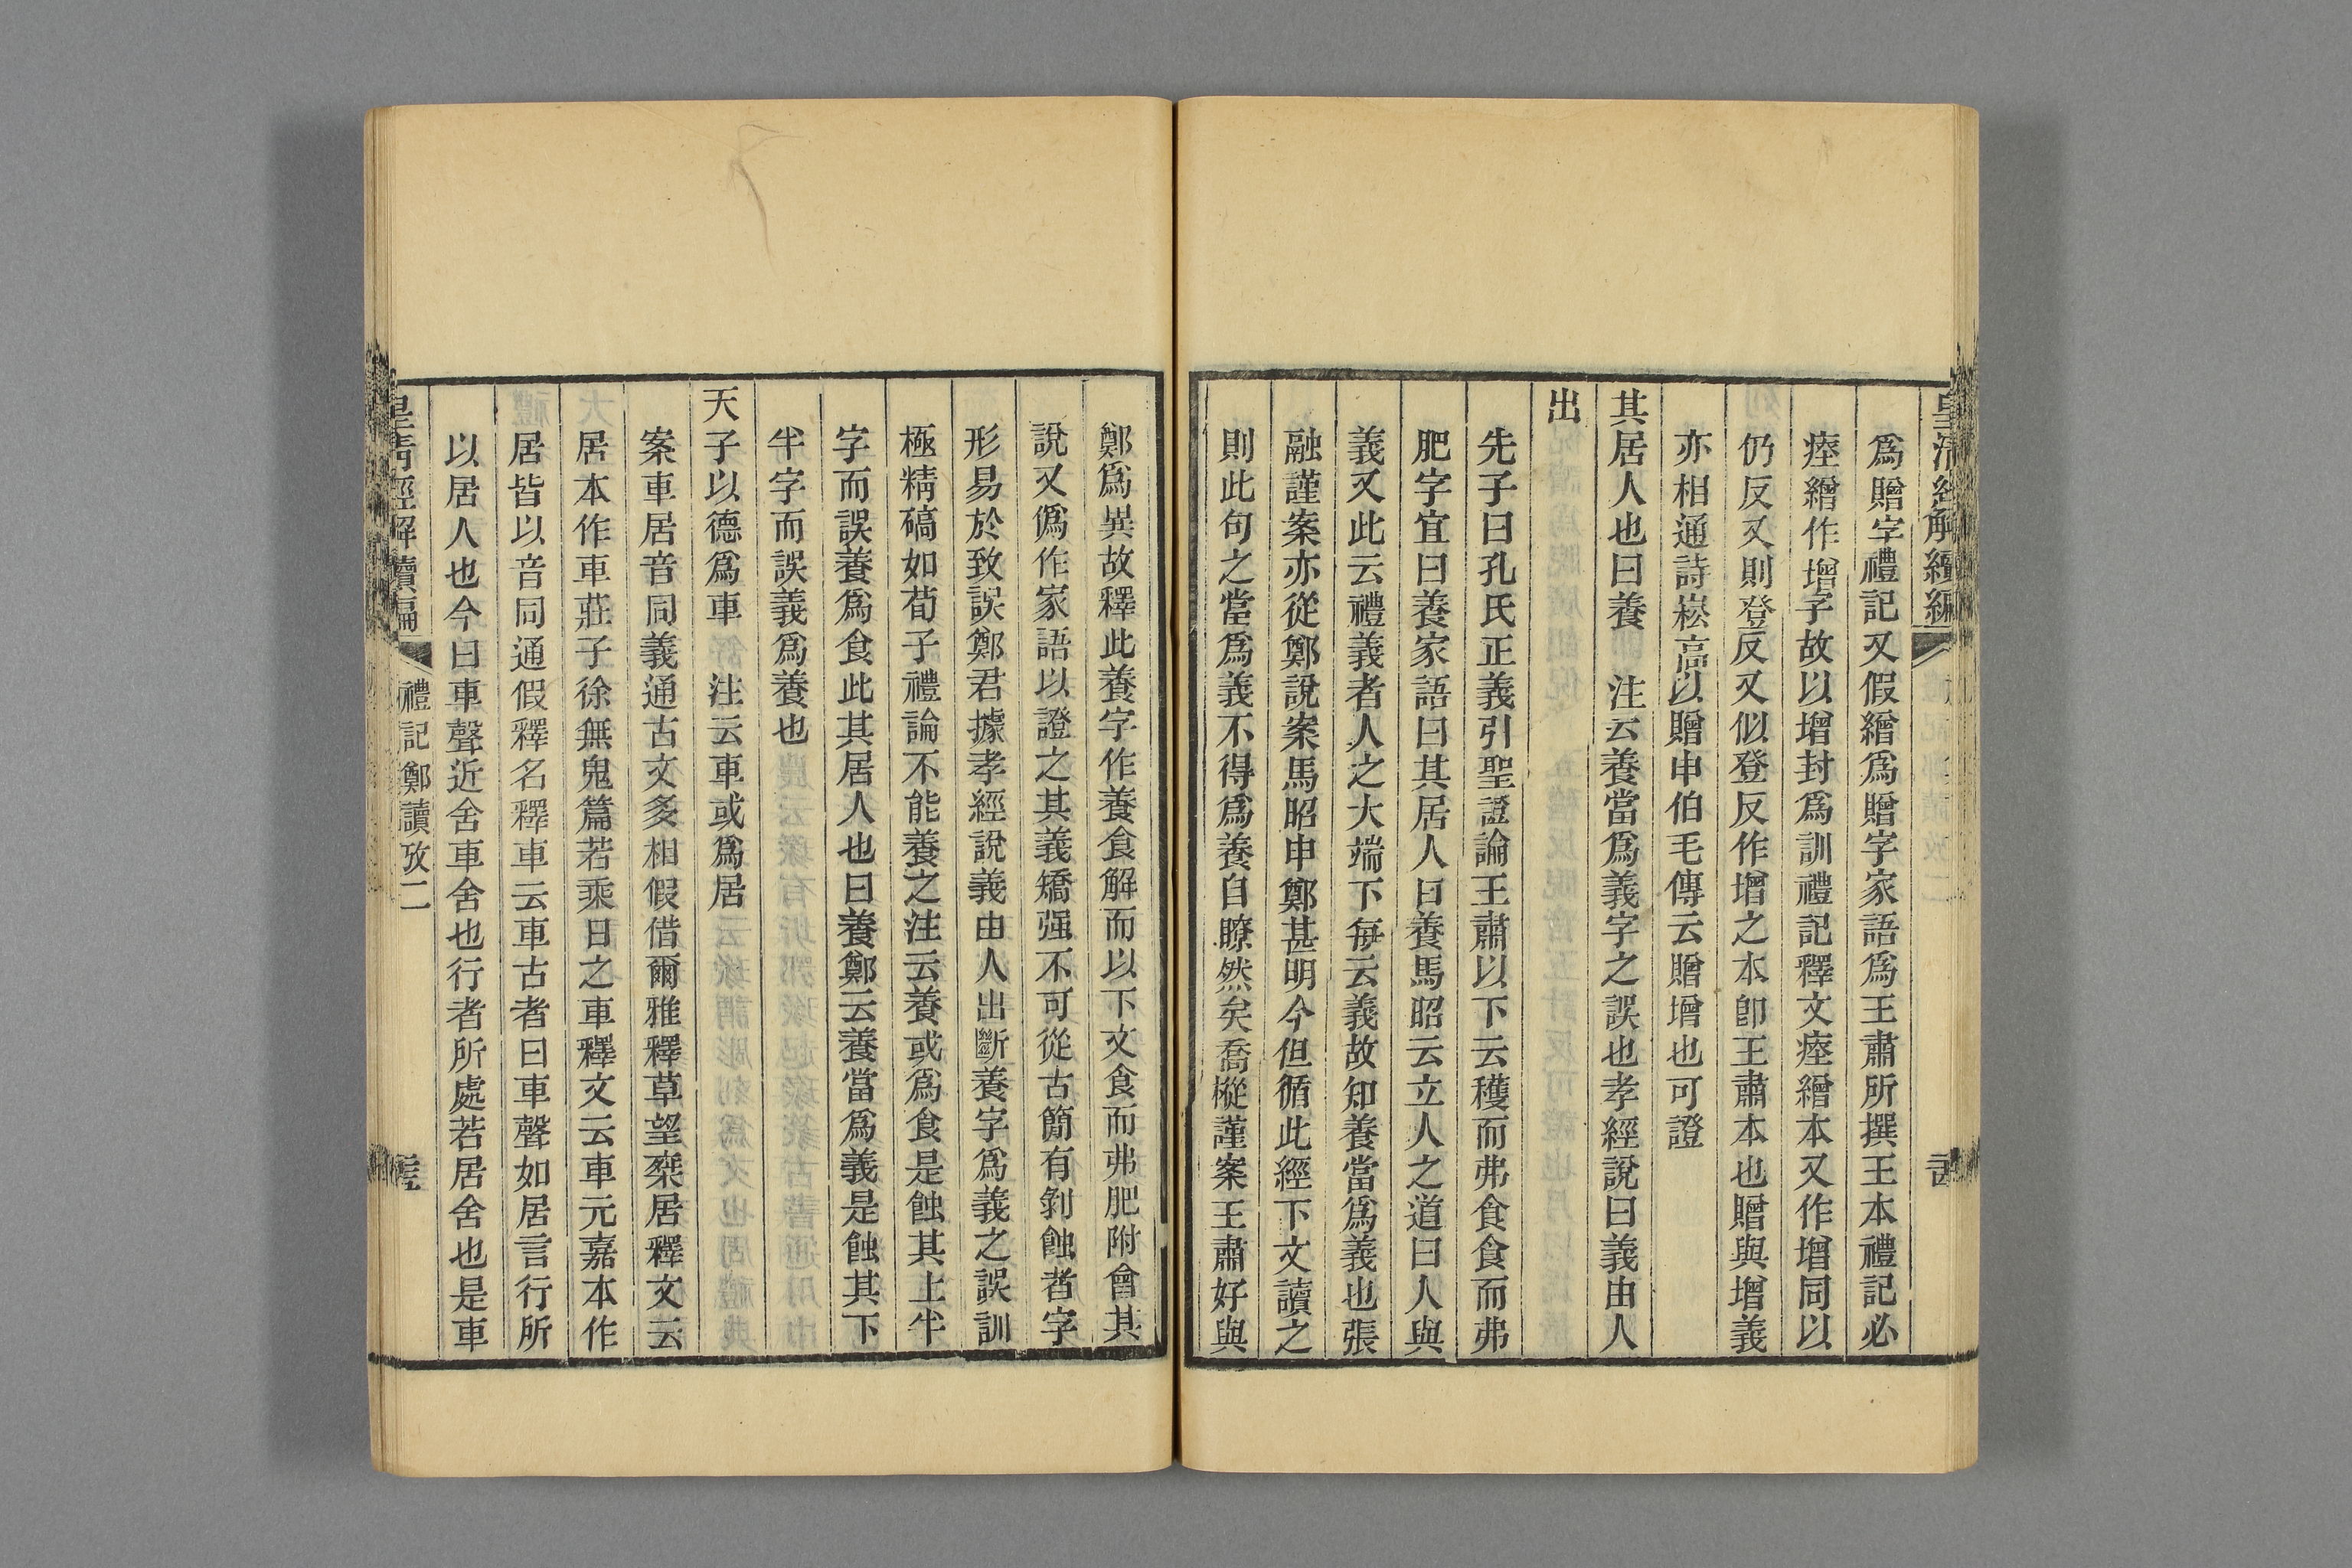 皇清經解續編
為贈字禮記又假繒為贈字家語為王肅所撰王本禮記必
瘞繒作增字故以增封為訓禮記釋文瘞繒本又作增同以
仍反又則登反又似登反作增之本卽王肅本也贈與增義
亦相通詩崧高以贈申伯毛傳云贈增也可證
其居人也曰養　注云養當為義字之誤也孝經說曰義由人
出
先子曰孔氏正義引聖證論王肅以下云穫而弗食食而弗
肥字宜曰養家語曰其居人曰養馬昭云立人之道曰人與
義又此云禮義者人之大端下每云義故知養當為義也張
融謹案亦從鄭說案馬昭申鄭甚明今但循此經下文讀之
則此句之當為義不得為養自瞭然矣喬樅謹案王肅好與
鄭為異故釋此養字作養食解而以下文食而弗肥附會其
說又僞作家語以證之其義矯强不可從古簡有剝蝕者字
形易於致誤鄭君據孝經說義由人出斷養字為義之誤訓
極精碻如荀子禮論不能養之注云養或為食是蝕其上半
字而誤養為食此其居人也曰養鄭云養當為義是蝕其下
半字而誤義為養也
天子以德為車　注云車或為居
案車居音同義通古文多相假借爾雅釋草望椉居釋文云
居本作車莊子徐無鬼篇若乘日之車釋文云車元嘉本作
居皆以音同通假釋名釋車云車古者曰車聲如居言行所
以居人也今曰車聲近舍車舍也行者所處若居舍也是車
皇清經解續編　禮記鄭讀攷二